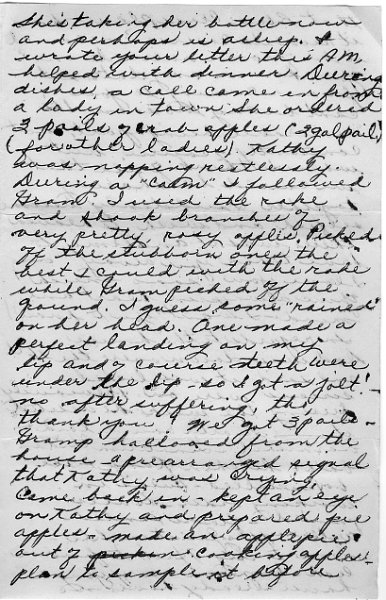 She's taking her bottle now
and perhaps is asleep. I
wrote your letter this A.M.
helped with dinner. During
dishes, a call came in from
a lady in town. She ordered
3 pails of crab apples (2 gal pail)
(for other ladies) Kathy
was napping restlessly.
During a "calm" I followed
Gram. I used the rake
and shook branches of
very pretty rosy apples. Picked
off the stubborn ones the
best I could with the rake
while Gram picked off the
ground. I guess some "rained"
on her head. One made a
perfect landing on my
lip and of course teeth were
under the lip - so I got a jolt!
no after suffering, tho'
thank you! We got 3 pails -
Gramp hallowed from the
house - a prearranged signal
that Kathy was crying,
came back in - kept an eye
on Kathy and prepared pie
apples - made an apple pie
out of cooking apples -
plan to sample it before